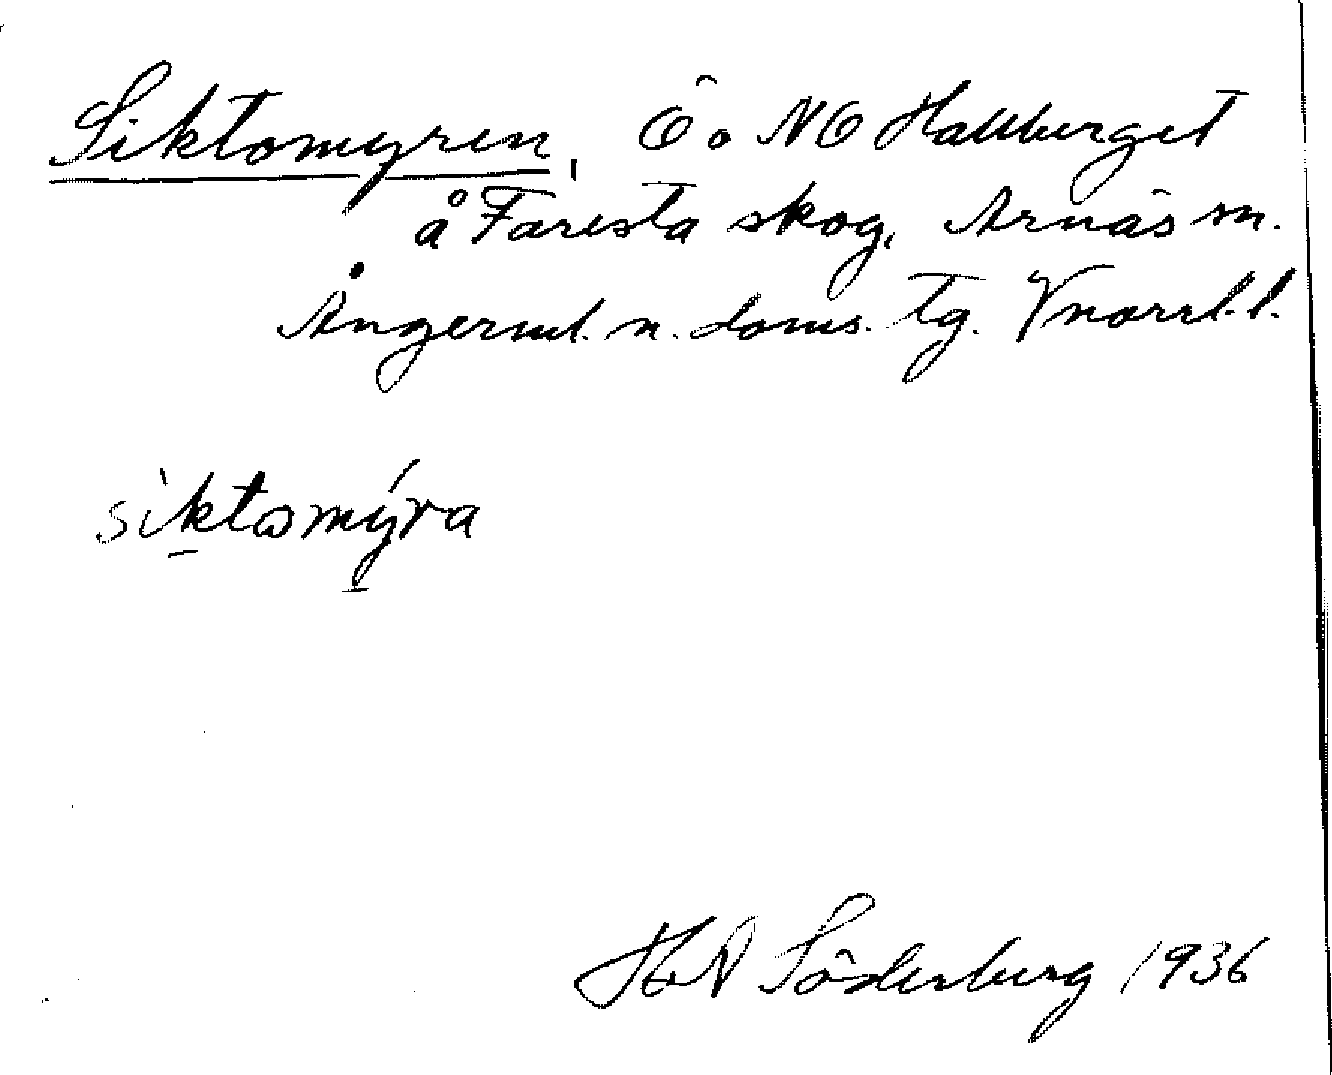 Siktomyren, Ö o NÖ Hallberget
å Faresta skog, Arnäs sn.
Ångerml. n. doms. tg. Vnorrl. l.
siktomýra
H A Söderberg 1936